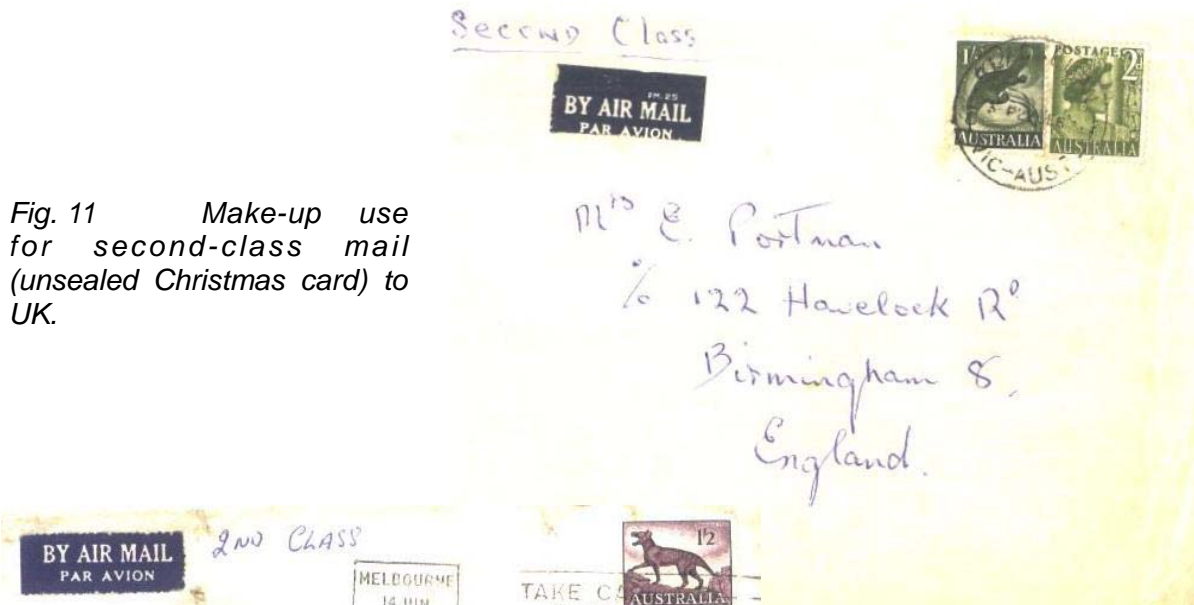 Second Class
BY AIR MAIL
PAR AVION
1/- POSTAGE 2d
AUSTRALIA AUSTRALIA
VIC-AUST
Fig. 11 Make-up use
for second-class mail
(unsealed Christmas card) to
UK.
Mrs E. Portman
c/o 122 Havelock Rd
Birmingham 8,
England.
BY AIR MAIL
PAR AVION
2ND CLASS
MELBOURNE
14 JUN
TAKE
1/2
AUSTRALIA